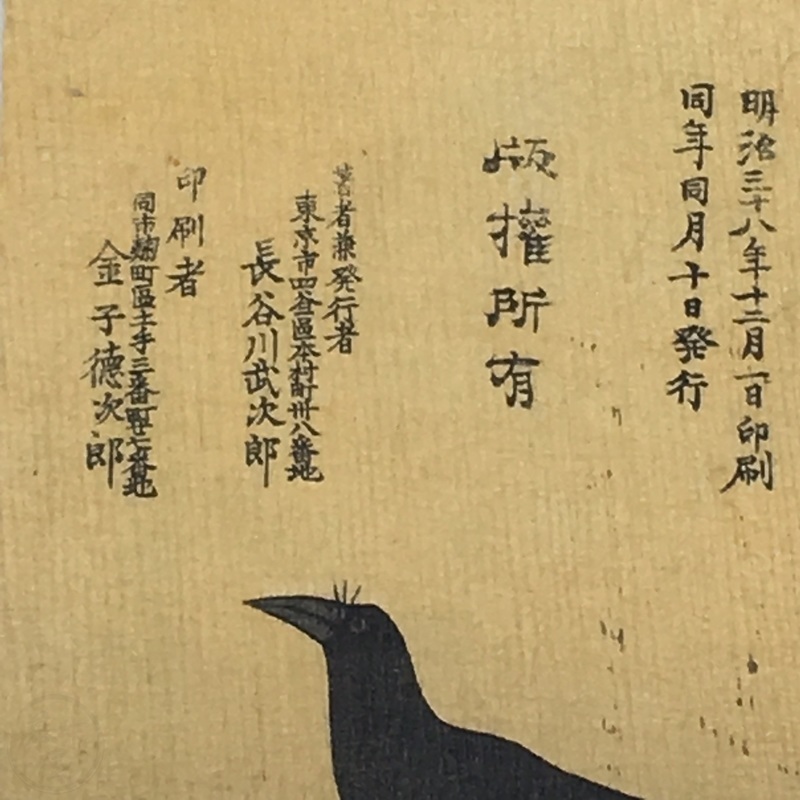 明治三十八年十二月一日印刷
同年同月十日発行
版權所有
著者兼発行者
東京市四谷區本村町卅八番地
長谷川武次郎
印刷者
同市麹町區土手三番町廿七番地
金子徳次郎